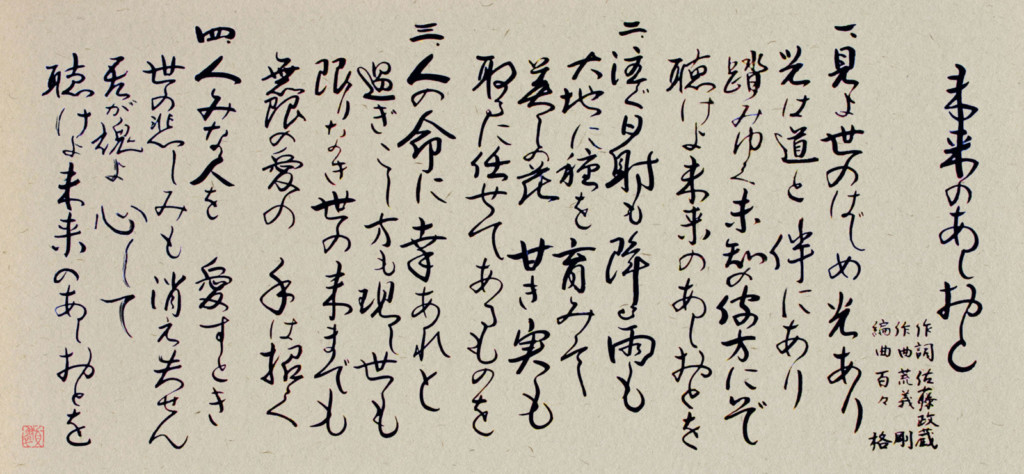 未来のあしおと
作詞 佐藤政蔵
作曲 荒義剛
編曲 百々格
一、見よ世のはじめ 光あり
光は道と 伴にあり
踏みゆく未知の 彼方にぞ
聴けよ未来のあしおとを
二、注ぐ日射も 降る雨も
大地に種を 育みて
美しの花 甘き実も
取るに任せてあるものを
三、人の命に 幸あれと
過ぎこし方も現し世も
限りなき世の末までも
無限の愛の 手は招く
四、人みな人を 愛すとき
世の悲しみも 消え失せん
吾が魂よ 心して
聴けよ未来のあしおとを